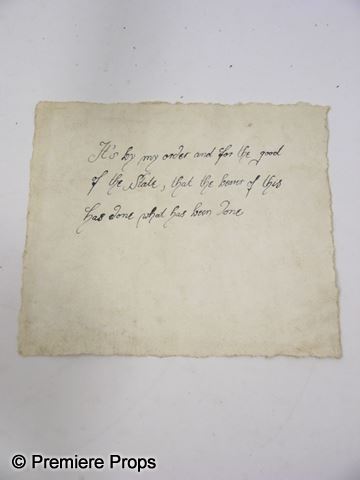 It's by my order and for the good
of the State, that the bearer of this
has done what has been done
© Premiere Props